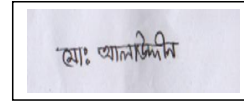 মোঃ আলাউদ্দীন